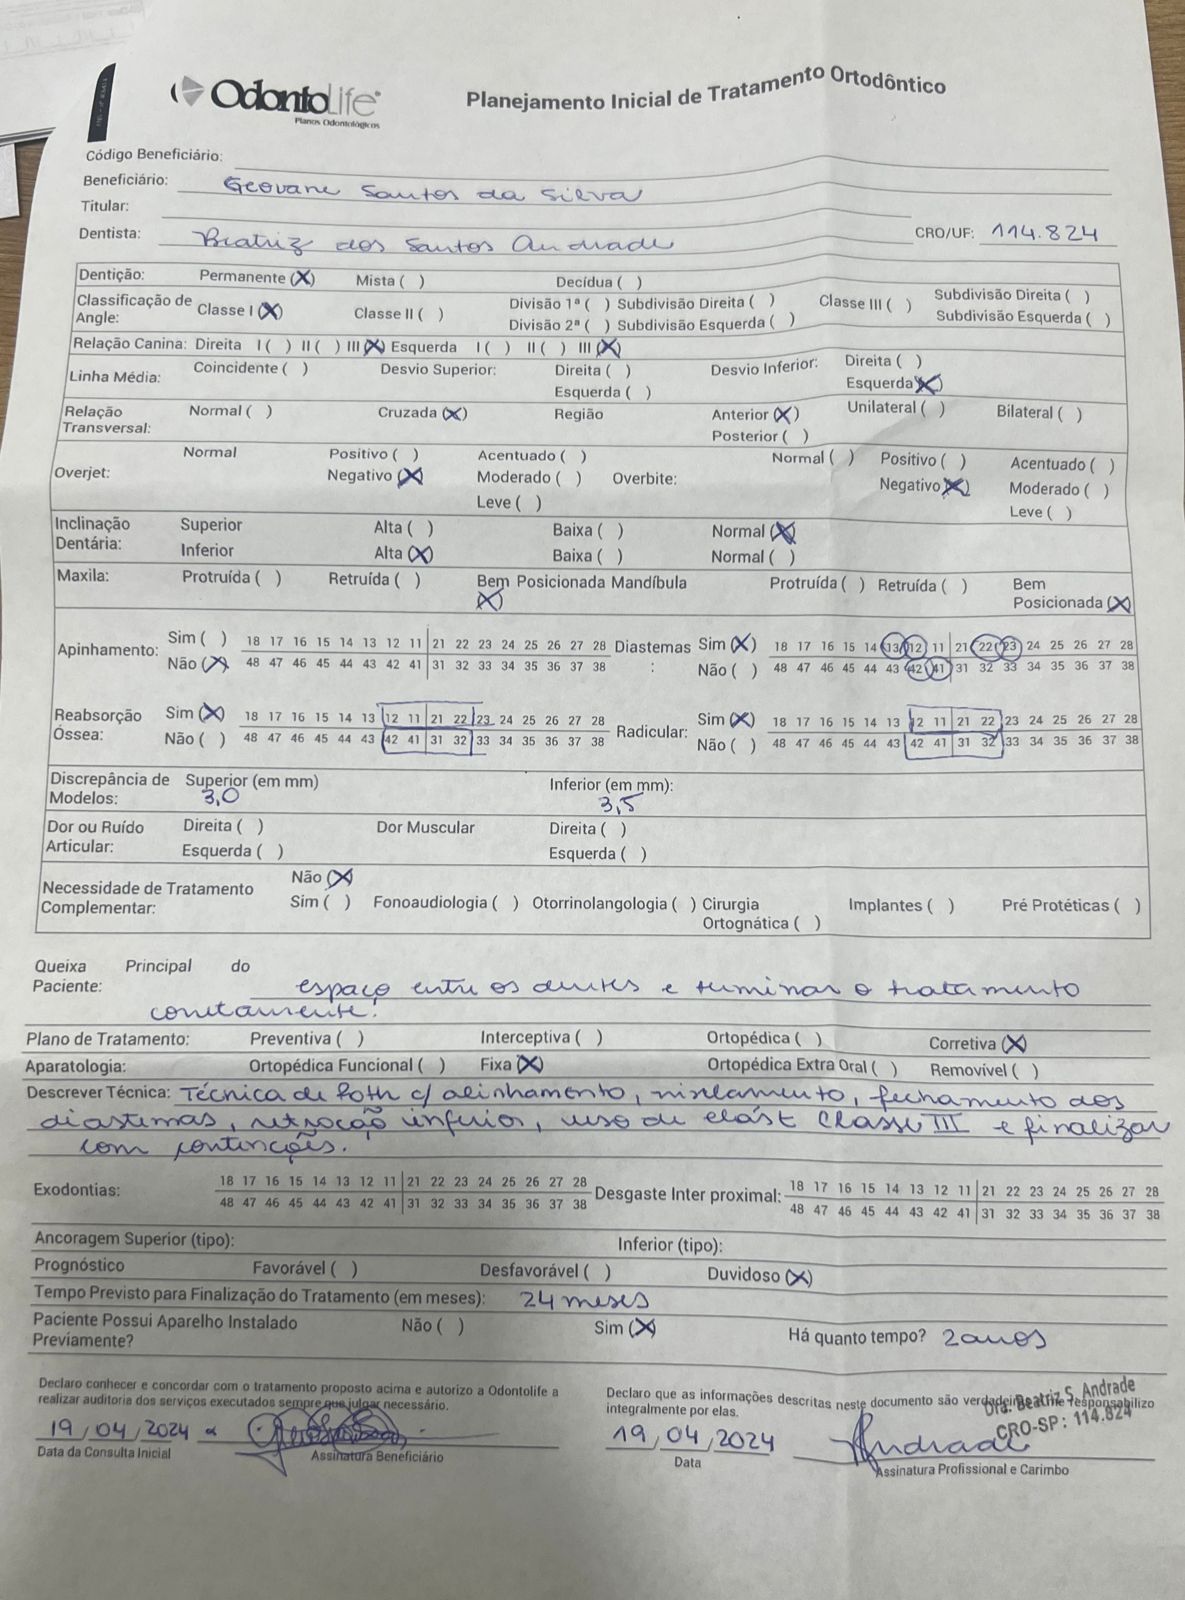 OdontoLife
Planos Odontológicos
Planejamento Inicial de Tratamento Ortodôntico
Código Beneficiário:
Beneficiário: Geovane Santos da Silva
Titular:
Dentista: Beatriz dos Santos Andrade CRO/UF: 114.824
Dentição: Permanente (X) Mista ( ) Decídua ( )
Classificação de Angle: Classe I (X) Classe II ( ) Divisão 1ª ( ) Subdivisão Direita ( ) Classe III ( ) Subdivisão Direita ( )
Divisão 2ª ( ) Subdivisão Esquerda ( ) Subdivisão Esquerda ( )
Relação Canina: Direita I ( ) II ( ) III (X) Esquerda I ( ) II ( ) III (X)
Linha Média: Coincidente ( ) Desvio Superior: Direita ( ) Desvio Inferior: Direita ( )
Esquerda ( ) Esquerda (X)
Relação Transversal: Normal ( ) Cruzada (X) Região Anterior (X) Unilateral ( ) Bilateral ( )
Posterior ( )
Overjet: Normal Positivo ( ) Acentuado ( ) Overbite: Normal ( ) Positivo ( ) Acentuado ( )
Negativo (X) Moderado ( ) Negativo (X) Moderado ( )
Leve ( ) Leve ( )
Inclinação Dentária: Superior Alta ( ) Baixa ( ) Normal (X)
Inferior Alta (X) Baixa ( ) Normal ( )
Maxila: Protruída ( ) Retruída ( ) Bem Posicionada (X) Mandíbula Protruída ( ) Retruída ( ) Bem Posicionada (X)
Apinhamento: Sim ( ) 18 17 16 15 14 13 12 11 21 22 23 24 25 26 27 28 Diastemas: Sim (X) 18 17 16 15 14 13 12 11 21 22 23 24 25 26 27 28
Não (X) 48 47 46 45 44 43 42 41 31 32 33 34 35 36 37 38 Não ( ) 48 47 46 45 44 43 42 41 31 32 33 34 35 36 37 38
Reabsorção Óssea: Sim (X) 18 17 16 15 14 13 12 11 21 22 23 24 25 26 27 28 Radicular: Sim (X) 18 17 16 15 14 13 12 11 21 22 23 24 25 26 27 28
Não ( ) 48 47 46 45 44 43 42 41 31 32 33 34 35 36 37 38 Não ( ) 48 47 46 45 44 43 42 41 31 32 33 34 35 36 37 38
Discrepância de Modelos: Superior (em mm) 3,0 Inferior (em mm): 3,5
Dor ou Ruído Articular: Direita ( ) Dor Muscular Direita ( )
Esquerda ( ) Esquerda ( )
Necessidade de Tratamento Complementar: Não (X)
Sim ( ) Fonoaudiologia ( ) Otorrinolangologia ( ) Cirurgia Ortognática ( ) Implantes ( ) Pré Protéticas ( )
Queixa Principal do Paciente: espaço entre os dentes e terminar o tratamento
corretamente.
Plano de Tratamento: Preventiva ( ) Interceptiva ( ) Ortopédica ( ) Corretiva (X)
Aparatologia: Ortopédica Funcional ( ) Fixa (X) Ortopédica Extra Oral ( ) Removível ( )
Descrever Técnica: Técnica de Roth c/ alinhamento, nivelamento, fechamento dos
diastemas, retração inferior, uso de elást Classe III e finalizar
com contenções.
Exodontias: 18 17 16 15 14 13 12 11 21 22 23 24 25 26 27 28 Desgaste Inter proximal: 18 17 16 15 14 13 12 11 21 22 23 24 25 26 27 28
48 47 46 45 44 43 42 41 31 32 33 34 35 36 37 38 48 47 46 45 44 43 42 41 31 32 33 34 35 36 37 38
Ancoragem Superior (tipo): Inferior (tipo):
Prognóstico Favorável ( ) Desfavorável ( ) Duvidoso (X)
Tempo Previsto para Finalização do Tratamento (em meses): 24 meses
Paciente Possui Aparelho Instalado Previamente? Não ( ) Sim (X) Há quanto tempo? 2 anos
Declaro conhecer e concordar com o tratamento proposto acima e autorizo a Odontolife a
realizar auditoria dos serviços executados sempre que julgar necessário.
19/04/2024
Data da Consulta Inicial Assinatura Beneficiário
Declaro que as informações descritas neste documento são verdadeiras e me responsabilizo
integralmente por elas.
Dra. Beatriz S. Andrade
CRO-SP: 114.824
19/04/2024 Andrade
Data Assinatura Profissional e Carimbo